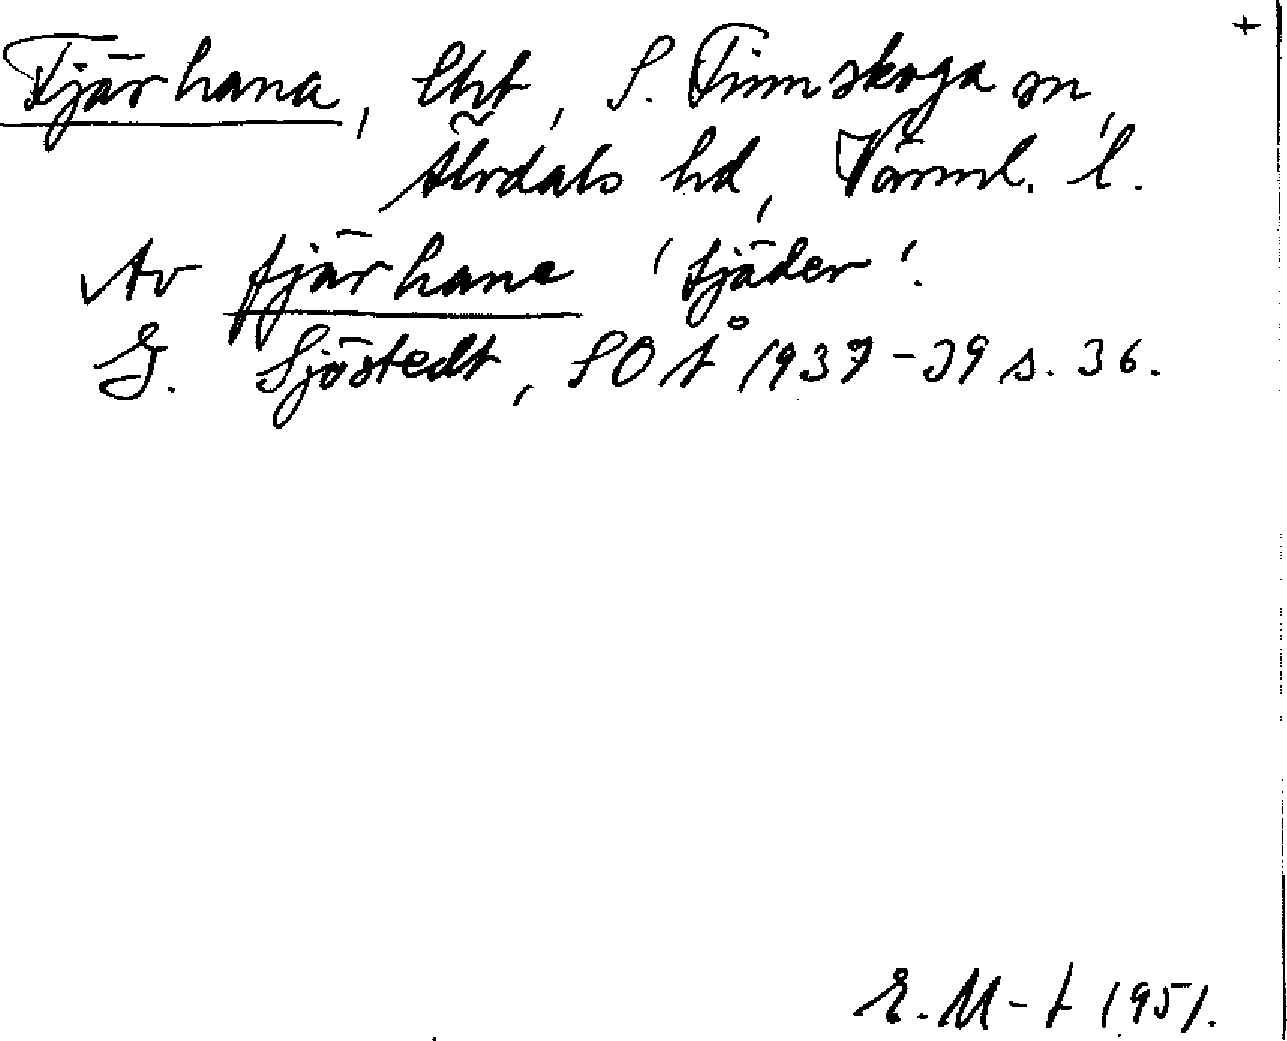 +
Fjärhana, lht, S. Finnskoga sn,
Älvdals hd, Värml. l.
Av fjärhane 'fjäder'.
G. Sjöstedt, SOÅ 1937-39 s. 36.
E. M-t 1951.